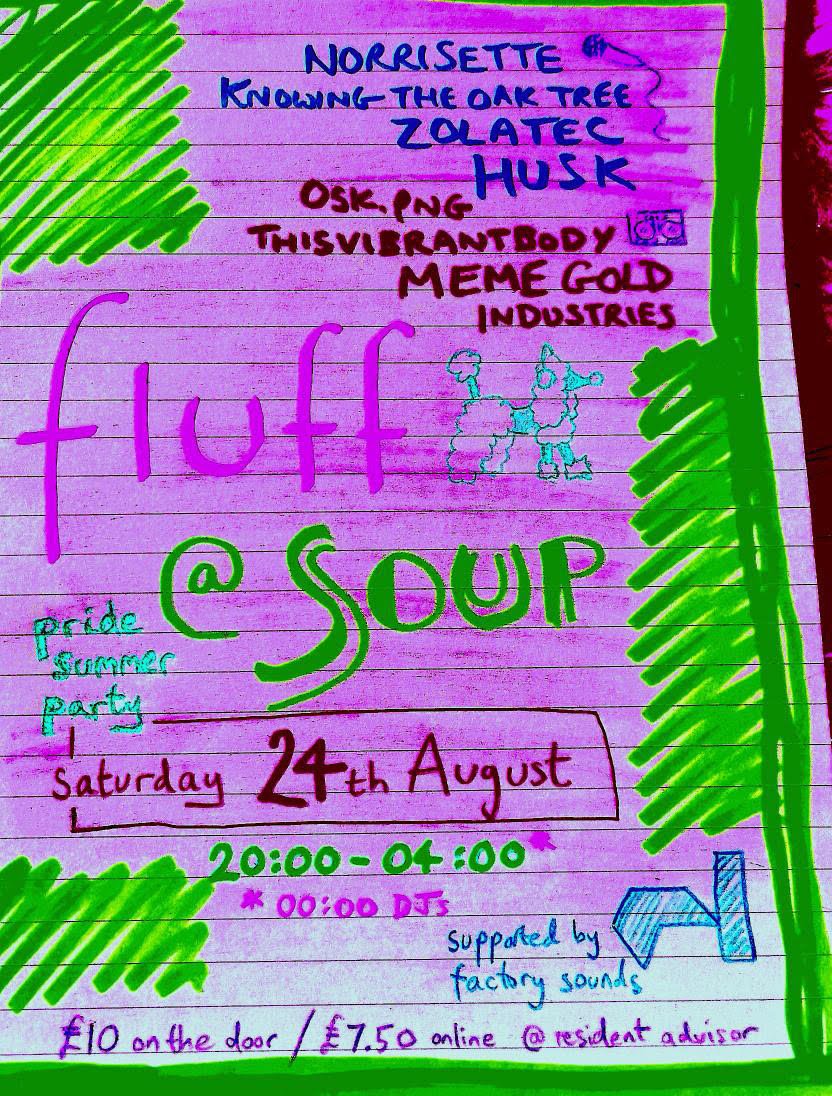 NORRISETTE
KNOWING THE OAK TREE
ZOLATEC
HUSK
OSK.PNG
THISVIBRANTBODY
MEME GOLD
INDUSTRIES
fluff
@ SOUP
pride
summer
party
Saturday 24th August
20:00 - 04:00*
* 00:00 DJs
supported by
factory sounds
£10 on the door / £7.50 online @ resident advisor